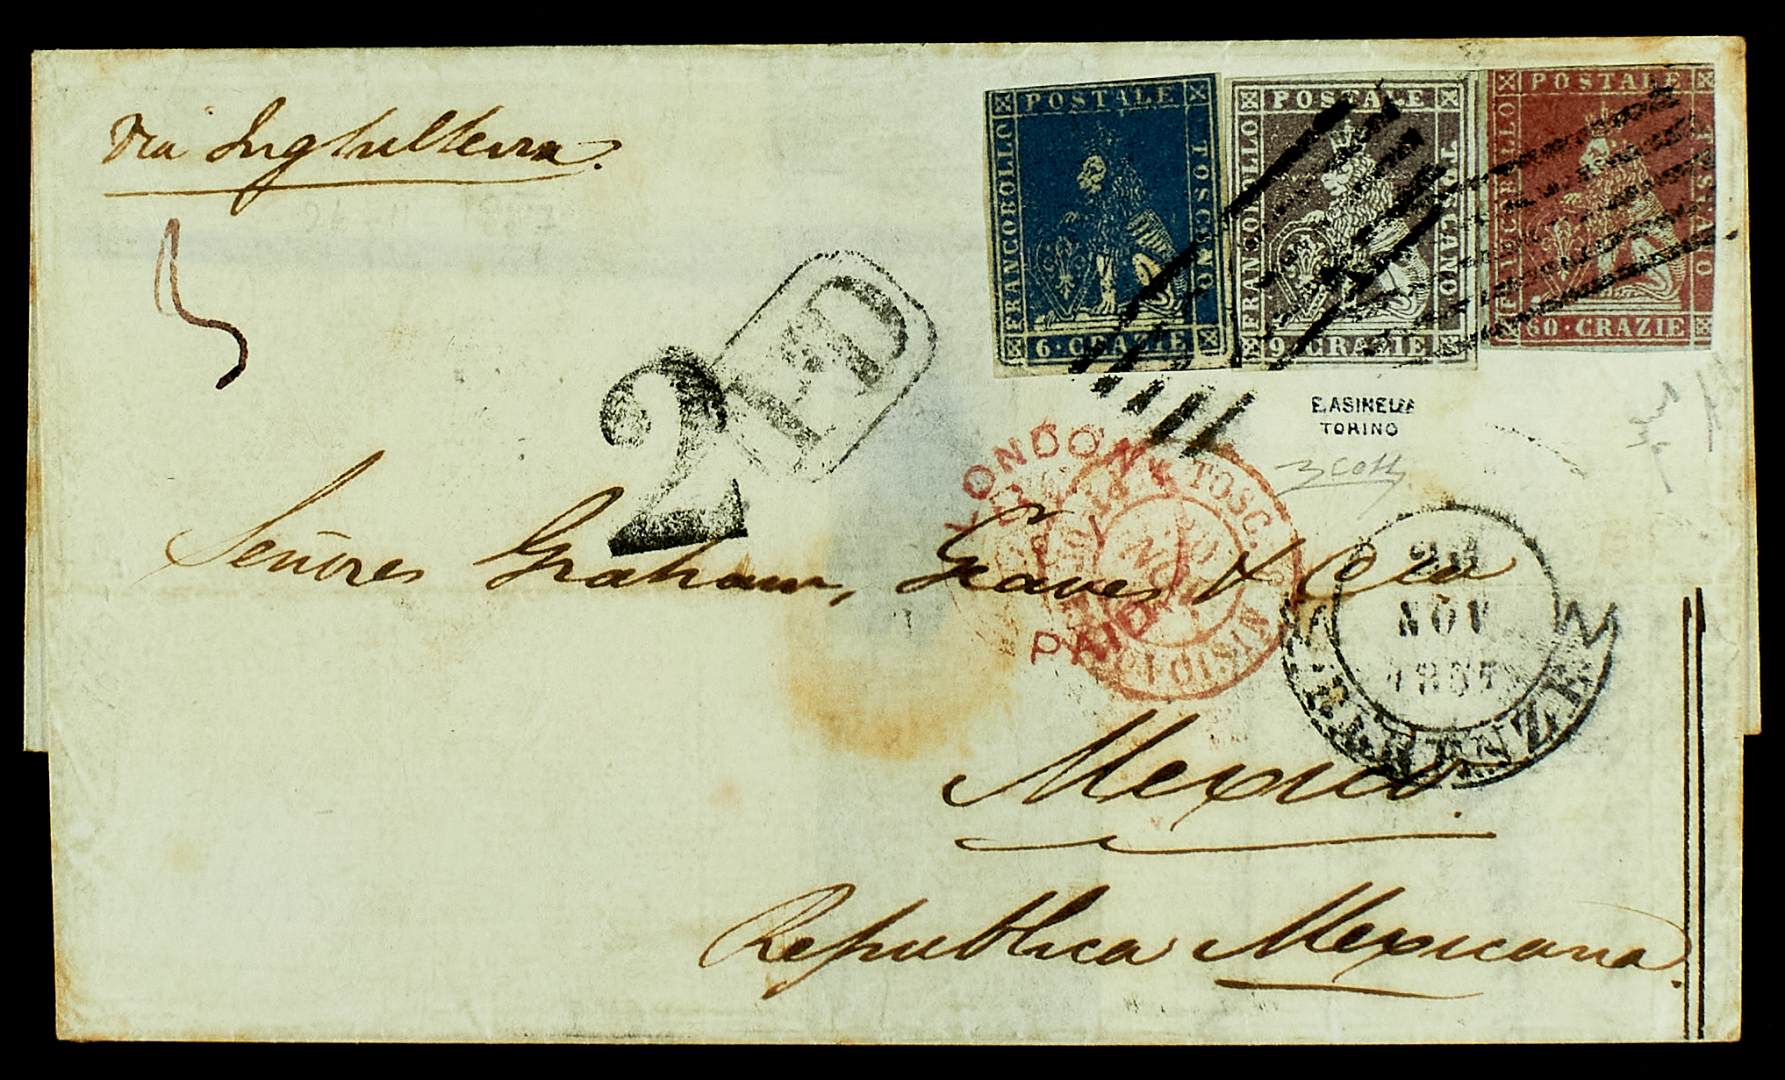 via Inghilterra.
POSTALE
FRANCOBOLLO
TOSCANO
6·CRAZIE
POSTALE
FRANCOBOLLO
TOSCANO
9·CRAZIE
POSTALE
TOSCANO
60·CRAZIE
PD
2
E. ASINELLI
TORINO
LONDON
PAID
TOSC.
Señores Graham, Geaves & Cia
NOV
1857
FIRENZE
Mexico.
Republica Mexicana.